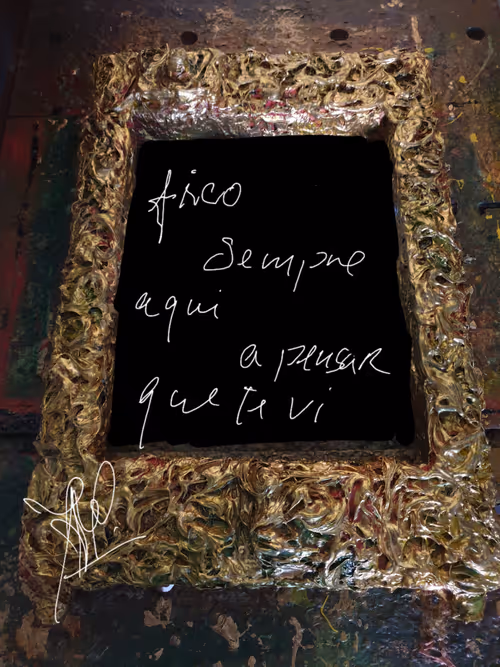 fico
sempre
aqui
a pensar
que te vi